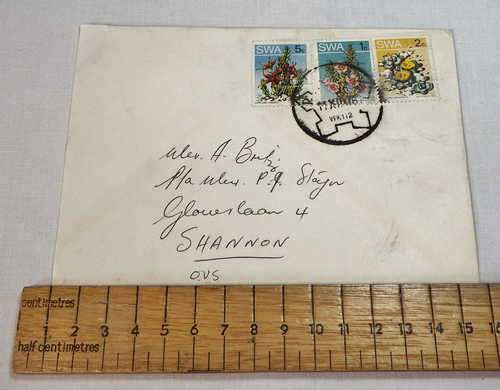 SWA 5c SWA 1c SWA 2c
VFK112
Mev. A. Brits.
P/a Mev. P.J. Steyn
Gloucslaan 4
SHANNON
OVS
centimetres
1 2 3 4 5 6 7 8 9 10 11 12 13 14 15 16
half centimetres